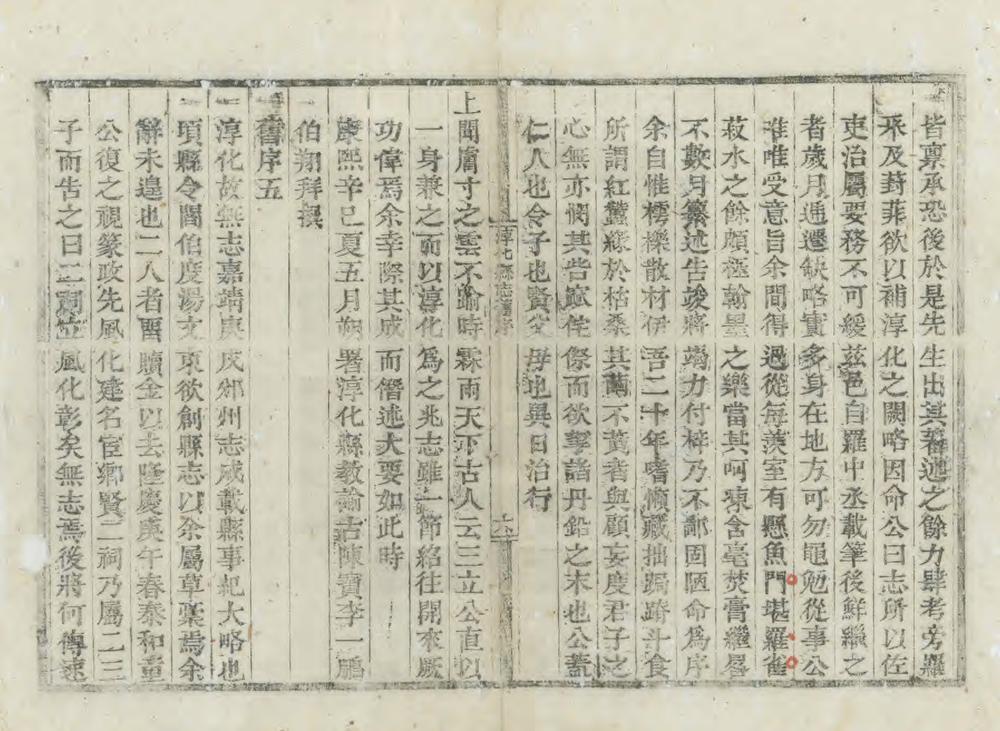 皆稟承恐後於是先生出其蓄迯之餘力肆考旁羅
釆及葑菲欲以補淳化之闕略因命公曰志所以佐
吏治屬要務不可緩茲邑自羅中丞載筆後鮮繼之
者歲月逓遷缺略實多身在地方可勿黽勉從事公
唯唯受意旨余間得過從每羨室有懸魚門堪羅雀
菽水之餘頗極翰墨之樂當其呵凍含毫焚膏繼晷
不數月纂述告竣將竭力付梓乃不鄙固陋命爲序
余自惟樗櫟散材伊吾二十年嗜懶藏拙跼蹐斗食
所謂紅鱻綠於枯桑其薾不蕡者與顧妄度君子之
心無亦憫其呰窳侘傺而欲挐諸丹鉛之末也公葢
仁人也令子也賢父母也異日治行
淳化縣志舊序 六
上聞膚寸之雲不踰時霖雨天下古人云三立公直以
一身兼之而以淳化爲之兆志雖一節紹往開來厥
功偉焉余幸際其成而僭述大要如此時
康熙辛巳夏五月朔署淳化縣教諭古陳寶李一鵬
伯翔拜撰
舊序五
淳化故無志嘉靖庚戌邠州志成載縣事紀大略也
項縣令閻伯度湯文東欲創縣志以余屬草稾焉余
辭未遑也二人者畱贖金以去隆慶庚午春泰和童
公復之視篆政先風化建名宦鄉賢二祠乃屬二三
子而告之曰二祠立風化彰矣無志焉後將何傳速